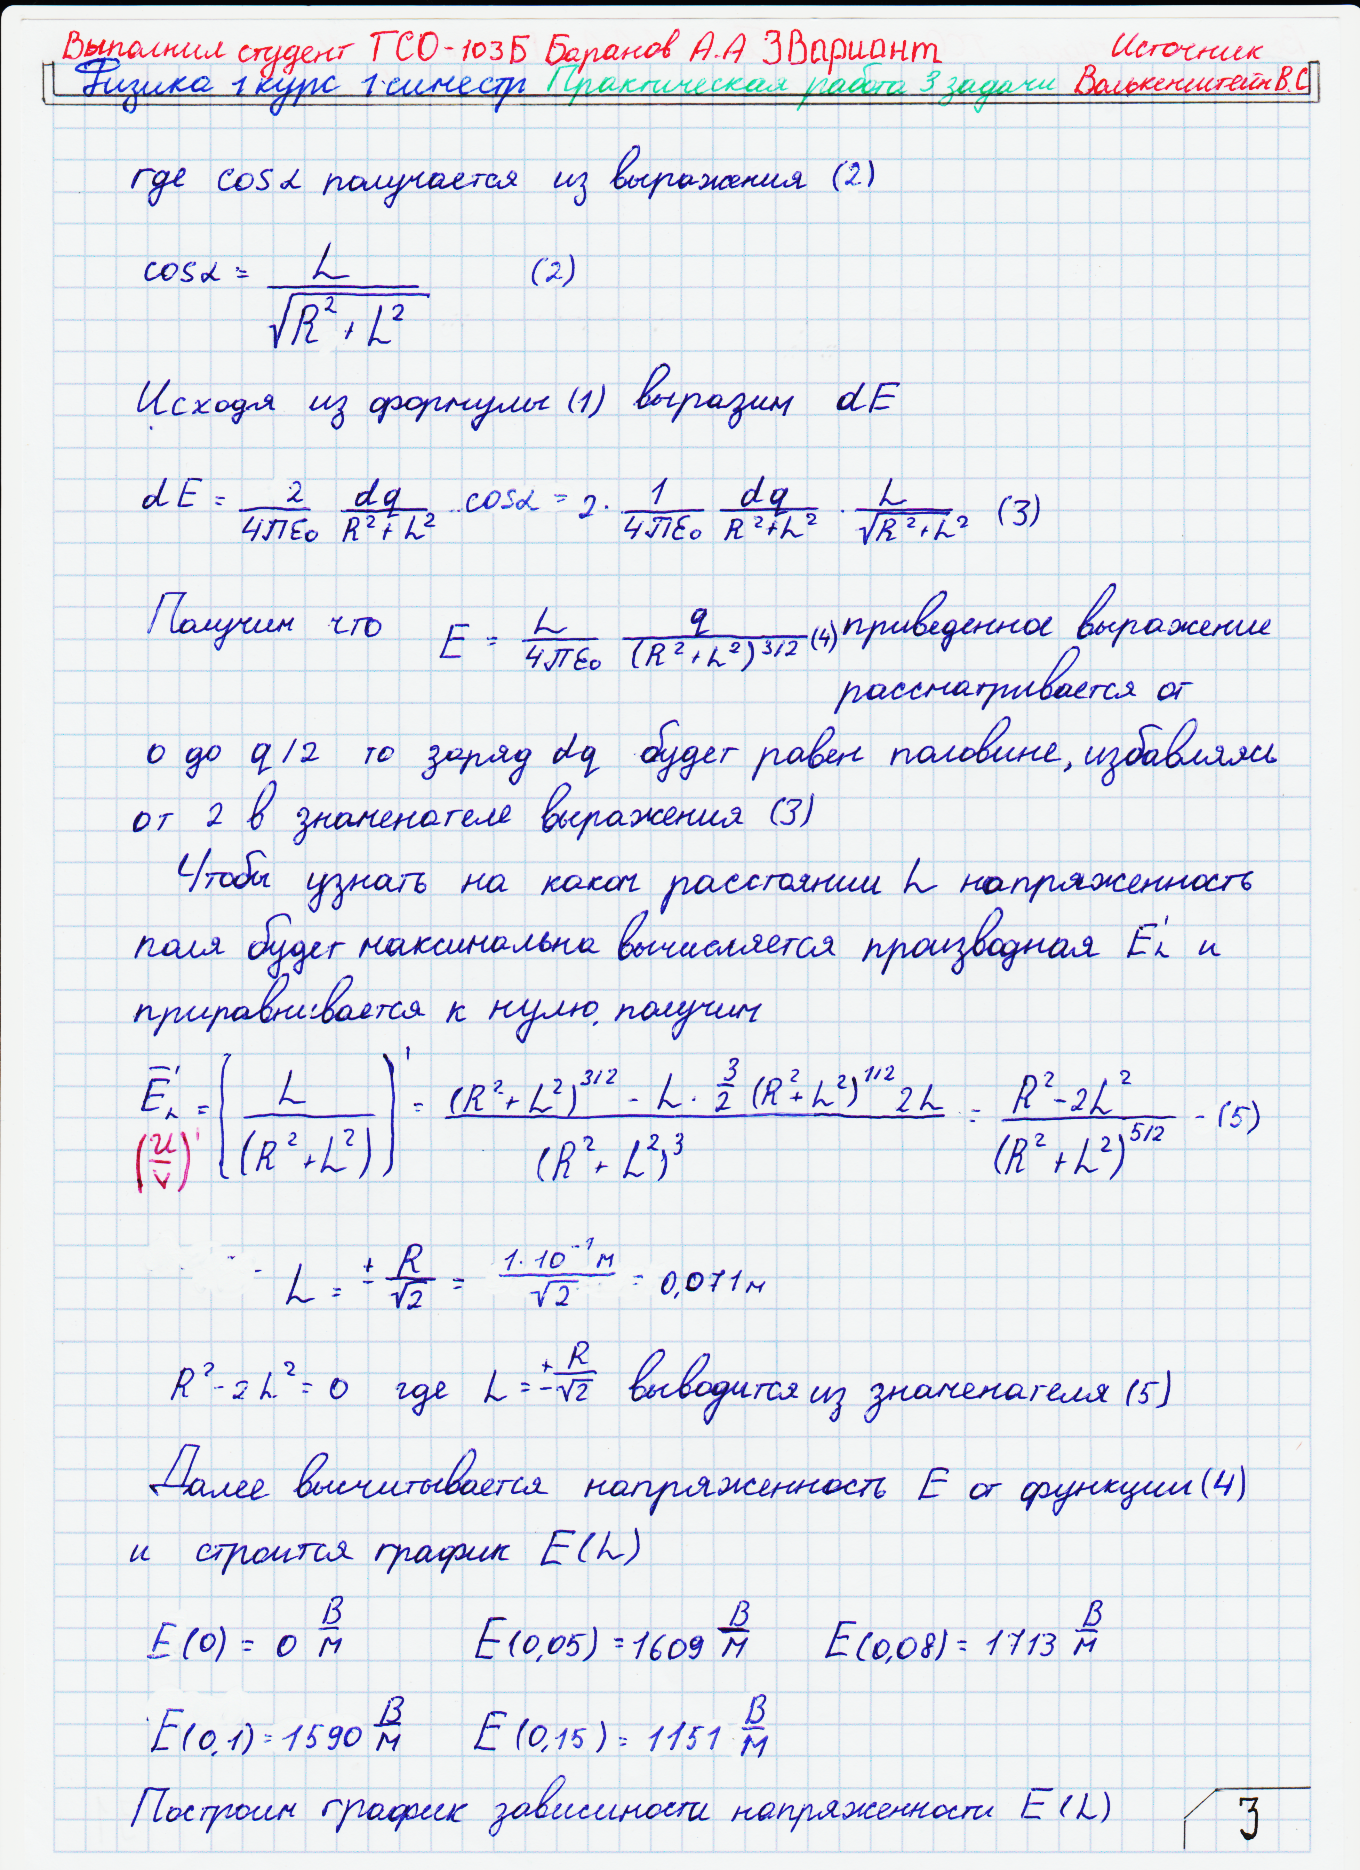 Выполнил студент ТСО-103Б Баранов А.А 3Вариант Источник
Физика 1 курс 1 симестр Практическая работа 3 задачи Волькенштейн В.С
где cosα получается из выражения (2)
cosα = L / √(R² + L²) (2)
Исходя из формулы (1) выразим dE
dE = 2/4πε₀ dq/(R²+L²) · cosα = 2 · 1/4πε₀ dq/(R²+L²) · L/√(R²+L²) (3)
Получим что E = L/4πε₀ q/(R²+L²)^3/2 (4) приведенное выражение
рассматривается от
0 до q/2 то заряд dq будет равен половине, избавляясь
от 2 в знаменателе выражения (3)
Чтобы узнать на каком расстоянии L напряженность
поля будет максимальна вычисляется производная E'L и
приравнивается к нулю, получим
E'L = [L / (R²+L²)]' = ((R²+L²)^3/2 - L · 3/2 (R²+L²)^1/2 2L) / (R²+L²)³ = (R²-2L²) / (R²+L²)^5/2 - (5)
(u/v)'
L = ± R/√2 = 1·10⁻¹м/√2 = 0,071м
R²-2L² = 0 где L = ± R/√2 выводится из знаменателя (5)
Далее высчитывается напряженность E от функции (4)
и строится график E(L)
E(0) = 0 В/м E(0,05) = 1609 В/м E(0,08) = 1713 В/м
E(0,1) = 1590 В/м E(0,15) = 1151 В/м
Построим график зависимости напряженности E(L)
3